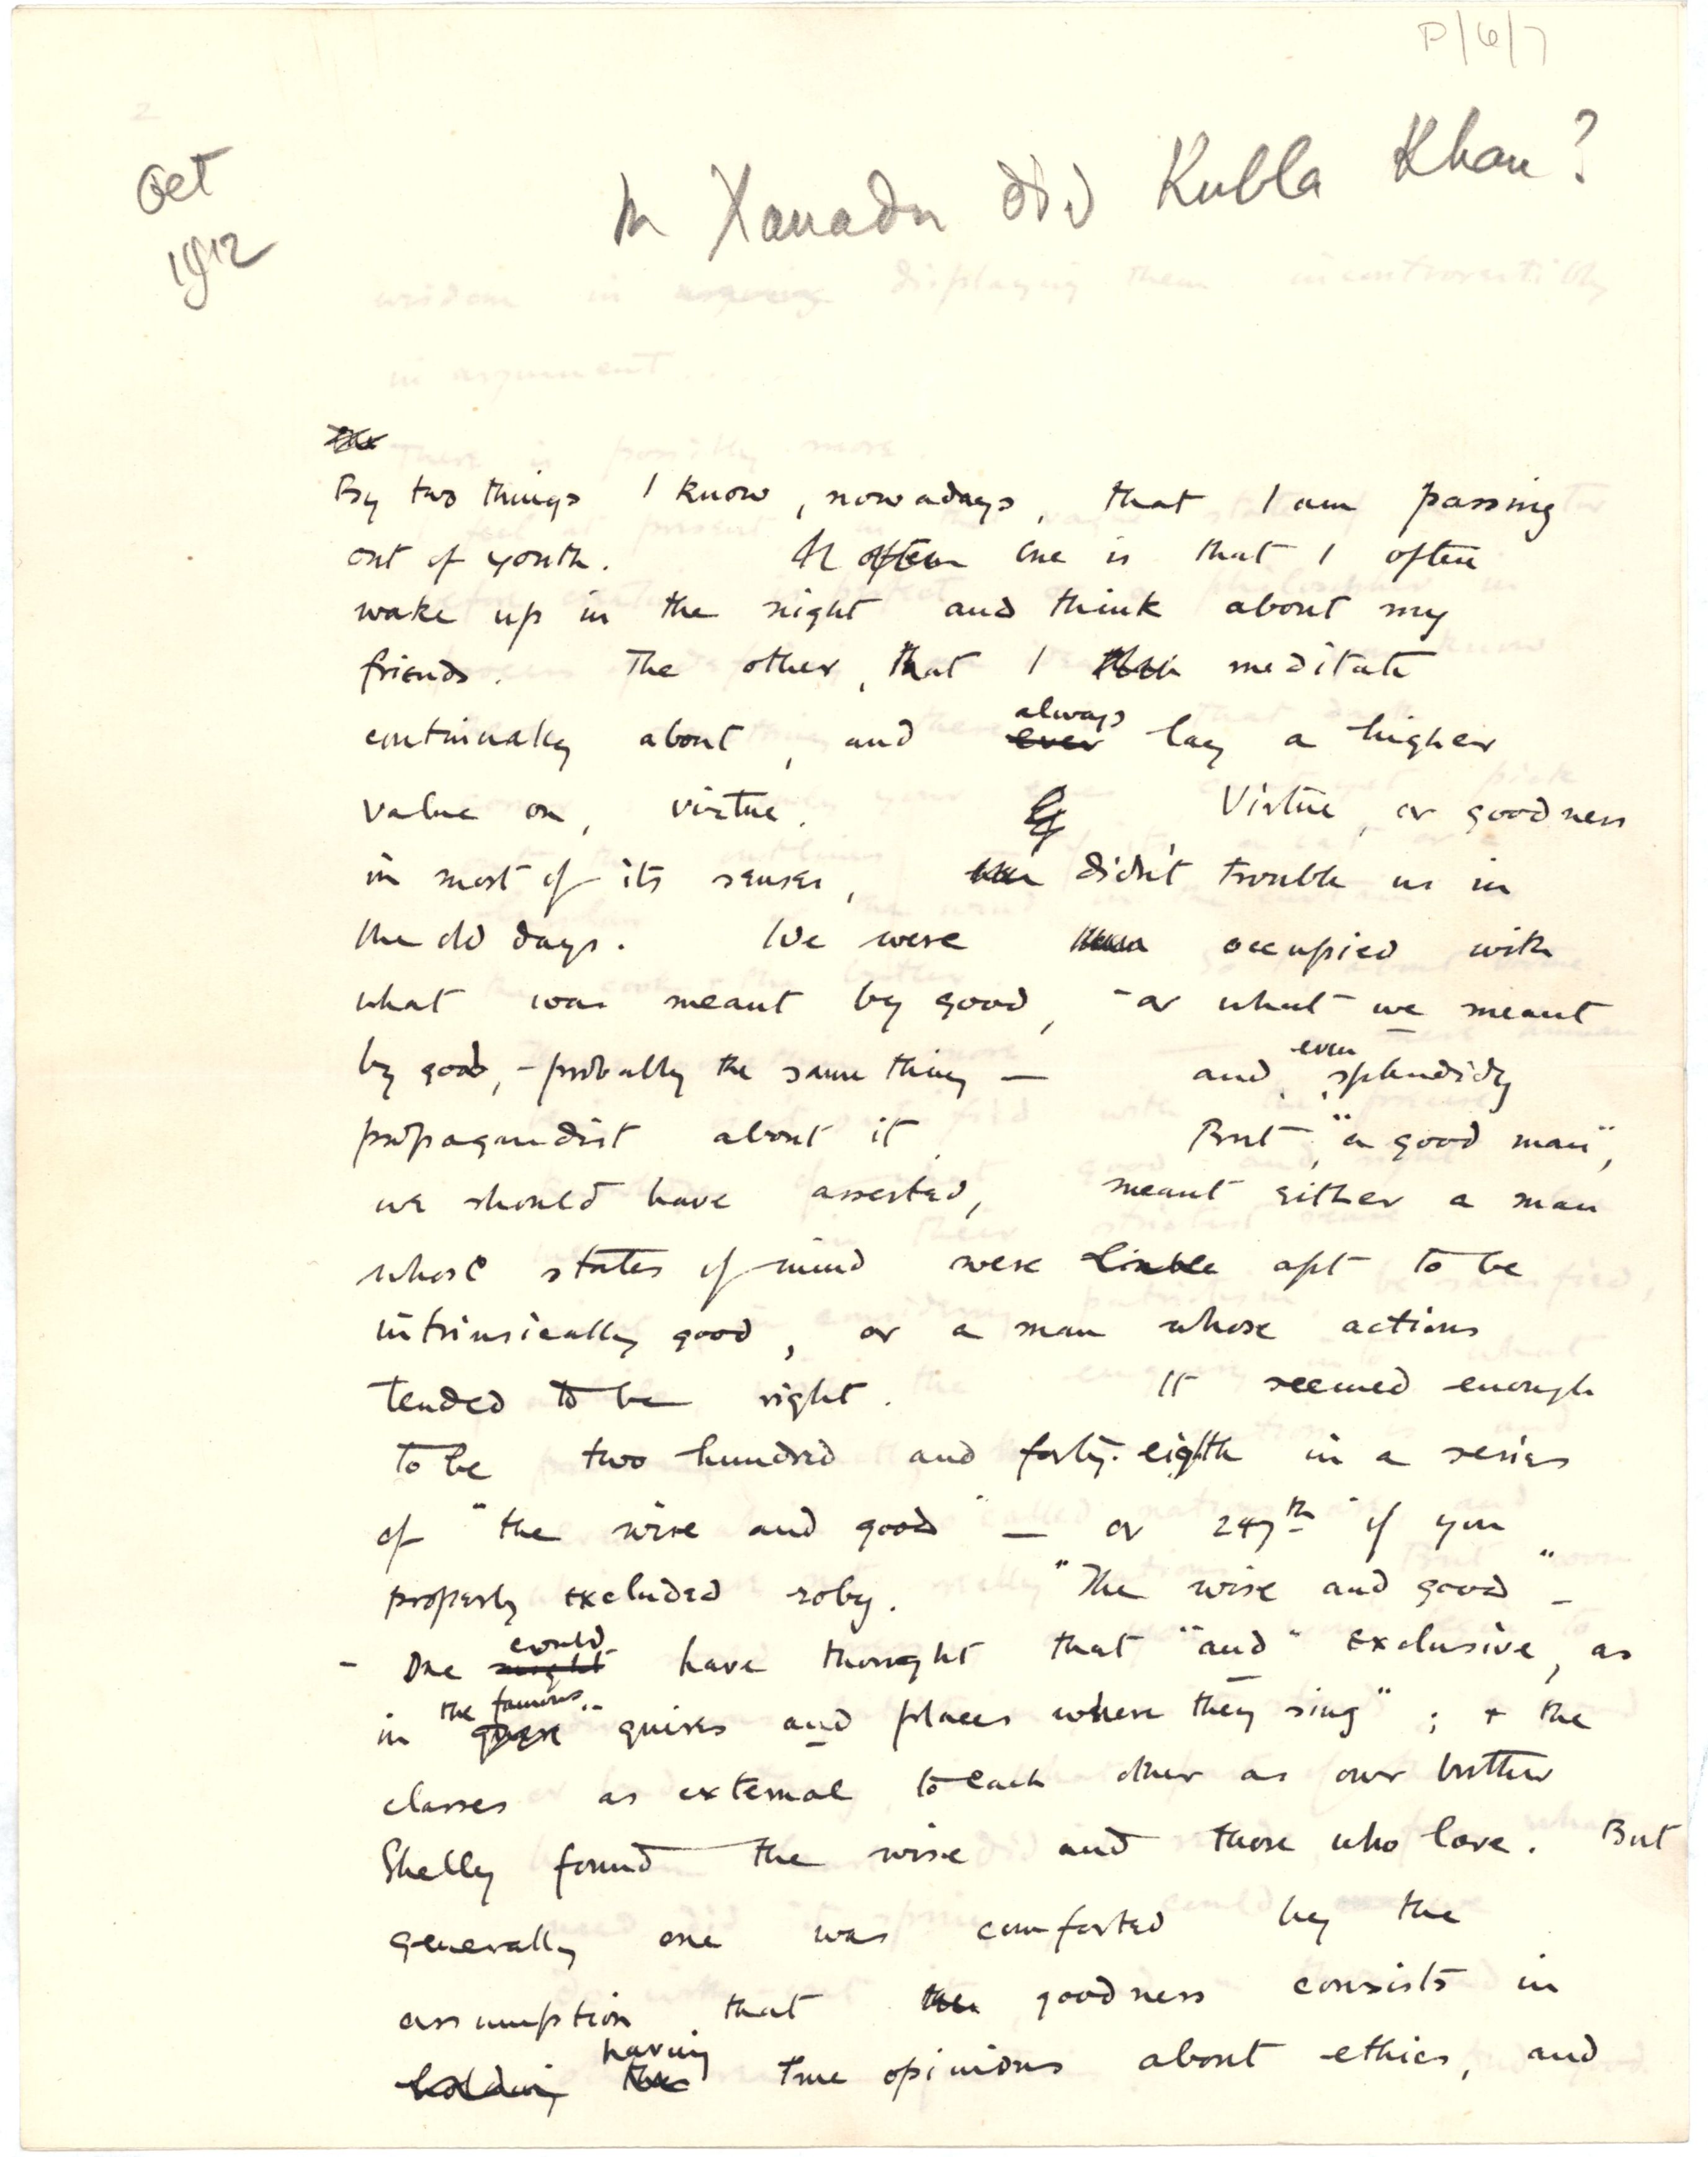 P/6/7
Oct
1912
In Xanadu did Kubla Khan?
By two things I know, nowadays, that I am passing
out of youth. often One is that I often
wake up in the night and think about my
friends. The other, that I meditate
continually about, and ever always lay a higher
value on, virtue. Virtue, or goodness
in most of its senses, didn't trouble us in
the old days. We were occupied with
what was meant by good, - or what we meant
by good, - probably the same thing — and even splendidly
propagandist about it. But, "a good man",
we should have asserted, meant either a man
whose states of mind were liable apt to be
intrinsically good, or a man whose actions
tended to be right. It seemed enough
to be two hundred and forty-eighth in a series
of "the wise and good" — or 247th if you
properly excluded roby. "The wise and good" -
- One might could have thought that "and" exclusive, as
in the famous "quires and places where they sing"; + the
classes as external to each other as our brother
Shelly found the wise and those who love. But
generally one was comforted by the
assumption that the goodness consists in
holding the having true opinions about ethics, and